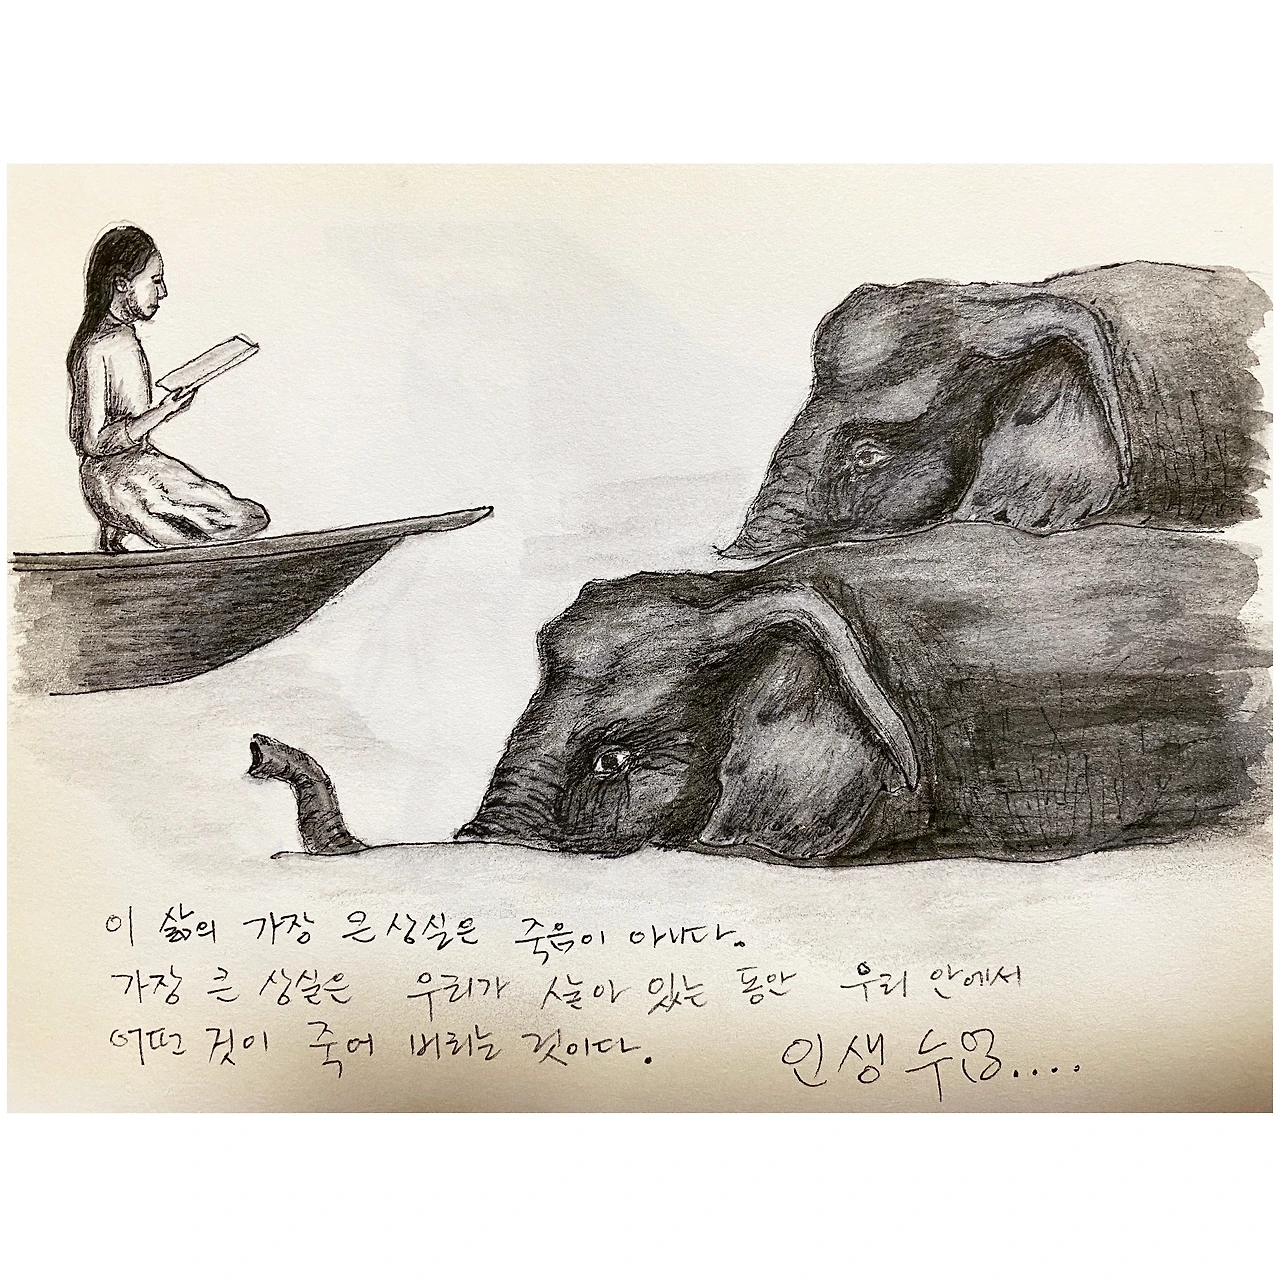 이 삶의 가장 큰 상실은 죽음이 아니다.
가장 큰 상실은 우리가 살아 있는 동안 우리 안에서
어떤 것이 죽어 버리는 것이다.
인생 수업....